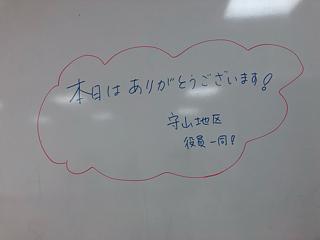 本日は ありがとうございます!
守山地区
役員一同!